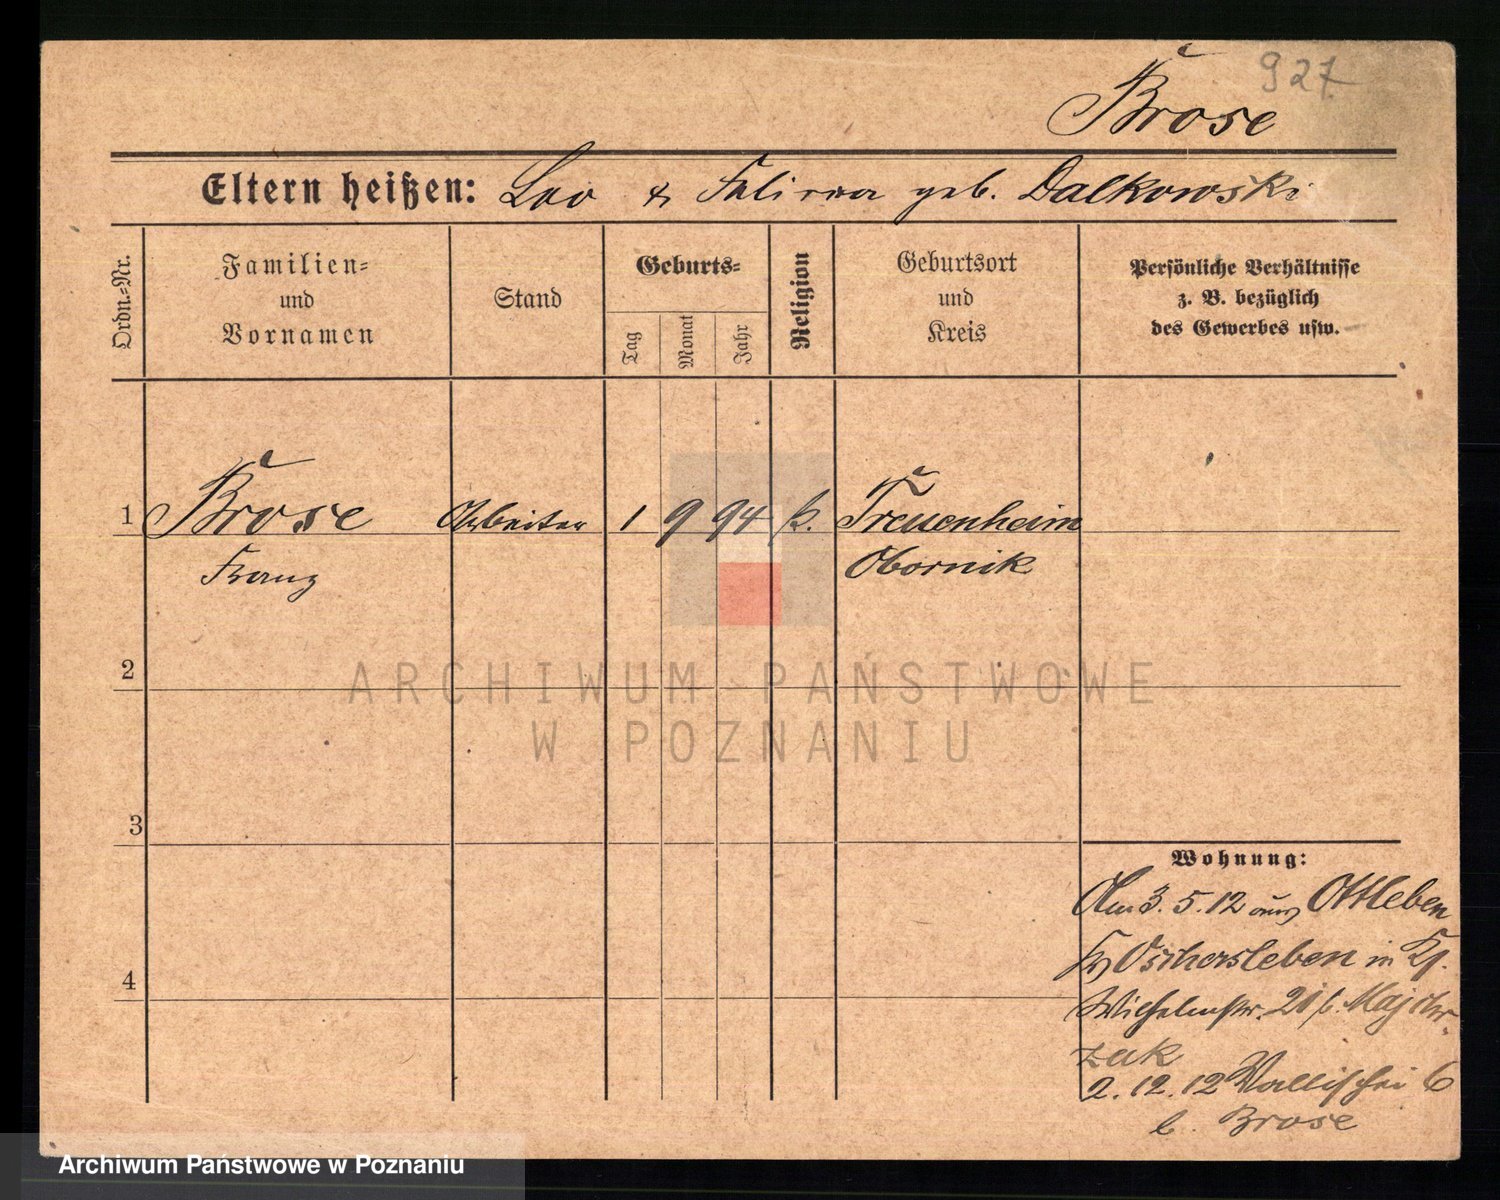 927
Brose
Eltern heißen: Leo & Felixa geb. Dalkowski
Ordn.=Nr.
Familien=
und
Vornamen
Stand
Geburts=
Tag
Monat
Jahr
Religion
Geburtsort
und
Kreis
Persönliche Verhältnisse
z. B. bezüglich
des Gewerbes usw.
1 Brose Arbeiter 1 9 94 k. Treuenheim
Franz Obornik
2
3
4
Wohnung:
Am 3.5.12 aus Ottleben
Kr Oschersleben in
Wilhelmstr. 20 b. Majchr-
zak
2.12.12 Wallischei 6
b. Brose
ARCHIWUM PAŃSTWOWE
W POZNANIU
Archiwum Państwowe w Poznaniu